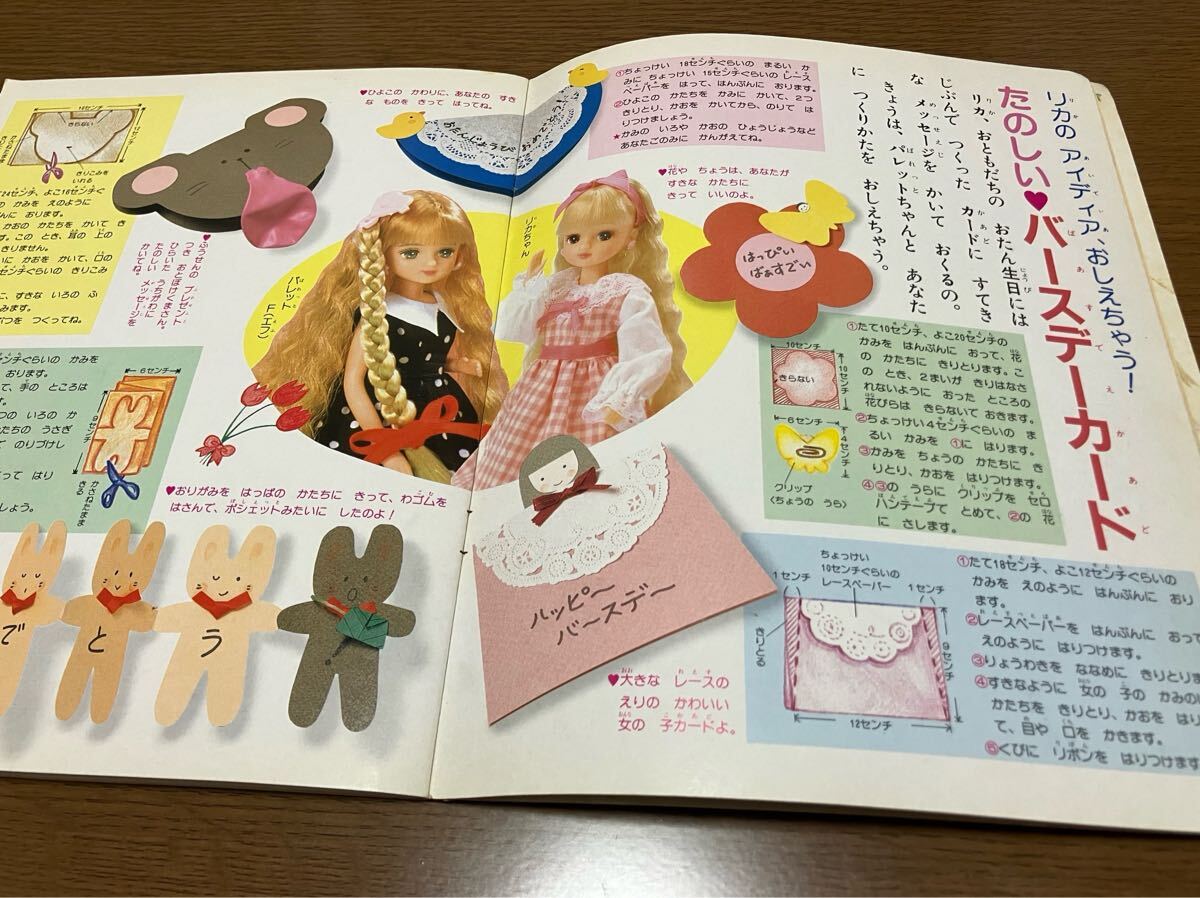 リカの アイディア、おしえちゃう!
たのしい♥バースデーカード
リカ、おともだちの おたん生日には
じぶんで つくった カードに すてき
な メッセージを かいて おくるの。
きょうは、パレットちゃんと あなた
に つくりかたを おしえちゃう。
①ちょっけい 18センチぐらいの まるい か
みに ちょっけい 15センチぐらいの レース
ペーパーを はって、はんぶんに おります。
②ひよこの かたちを かみに かいて、2つ
きりとり、かおを かいてから、のりで は
りつけましょう。
★かみの いろや かおの ひょうじょうなど
あなたごのみに かんがえてね。
♥花や ちょうは、あなたが
すきな かたちに
きって いいのよ。
はっぴい
ばぁすでい
リカちゃん
パレット
F(エフ)
①たて10センチ、よこ20センチの
かみを はんぶんに おって、花
の かたちに きりとります。こ
の とき、2まいが きりはなさ
れないように おった ところの
花びらは きらないで おきます。
②ちょっけい4センチぐらいの ま
るい かみを ①に はります。
③かみを ちょうの かたちに き
りとり、かおを はりつけます。
④③の うらに クリップを セロ
ハンテープで とめて、②の 花
に さします。
10センチ
10センチ
きらない
6センチ
4センチ
クリップ
〈ちょうの うら〉
①たて18センチ、よこ12センチぐらいの
かみを えのように はんぶんに おり
ます。
②レースペーパーを はんぶんに おって
えのように はりつけます。
③りょうわきを ななめに きりとりま
④すきなように 女の 子の かみの
かたちを きりとり、かおを はり
て、目や 口を かきます。
⑤くびに リボンを はりつけます
ちょっけい
10センチぐらいの
レースペーパー
1センチ
1センチ
きりとる
9センチ
12センチ
ハッピー
バースデー
♥大きな レースの
えりの かわいい
女の 子カードよ。
♥ひよこの かわりに、あなたの すき
な ものを きって はってね。
おたんじょうび
♥ふうせんの プレゼント
つき おとぼけくまさん。
ひらいた うちがわに
たのしい メッセージを
かいてね。
きらない
きりこみを
いれる
24センチ、よこ16センチぐ
の かみを えのように
んに おります。
かおの かたちを かいて き
す。この とき、耳の 上の
きりません。
いに かおを かいて、口の
センチぐらいの きりこみ
に、すきな いろの ふ
みます。
つを つくってね。
センチぐらいの かみを
おります。
て、手の ところは
つの いろの か
たちの うさぎ
て のりづけし
って はり
しょう。
6センチ
9センチ
かさねたまま
きる
♥おりがみを はっぱの かたちに きって、わゴムを
はさんで、ポシェットみたいに したのよ!
で
と
う